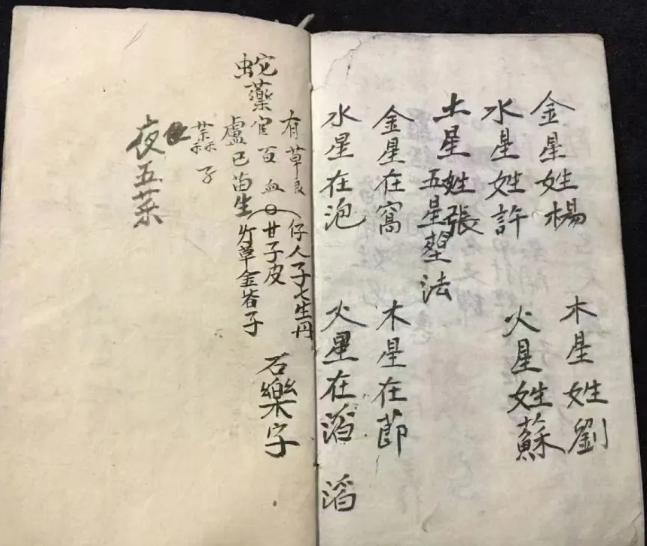 金星姓楊 木星姓劉
水星姓許 火星姓蘇
土星姓張
五星塟法
金星在窩 木星在節
水星在泡 火星在滔 滔
蛇藥
有草良 仔人子七生丹
官百血 甘子皮
盧巳苗生 竹草金 子
石樂字
子
夜 五菜